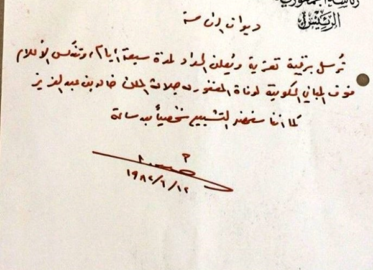 رئاسة الجمهورية
الرئيس
ديوان الرئاسة
ترسل برقية تعزية ويعلن الحداد لمدة سبعة أيام، وتنكس الأعلام
فوق المباني الحكومية لوفاة المغفور له جلالة الملك خالد بن عبد العزيز
كما أننا سنحضر التشييع شخصياً
١٩٨٢/٦/١٣